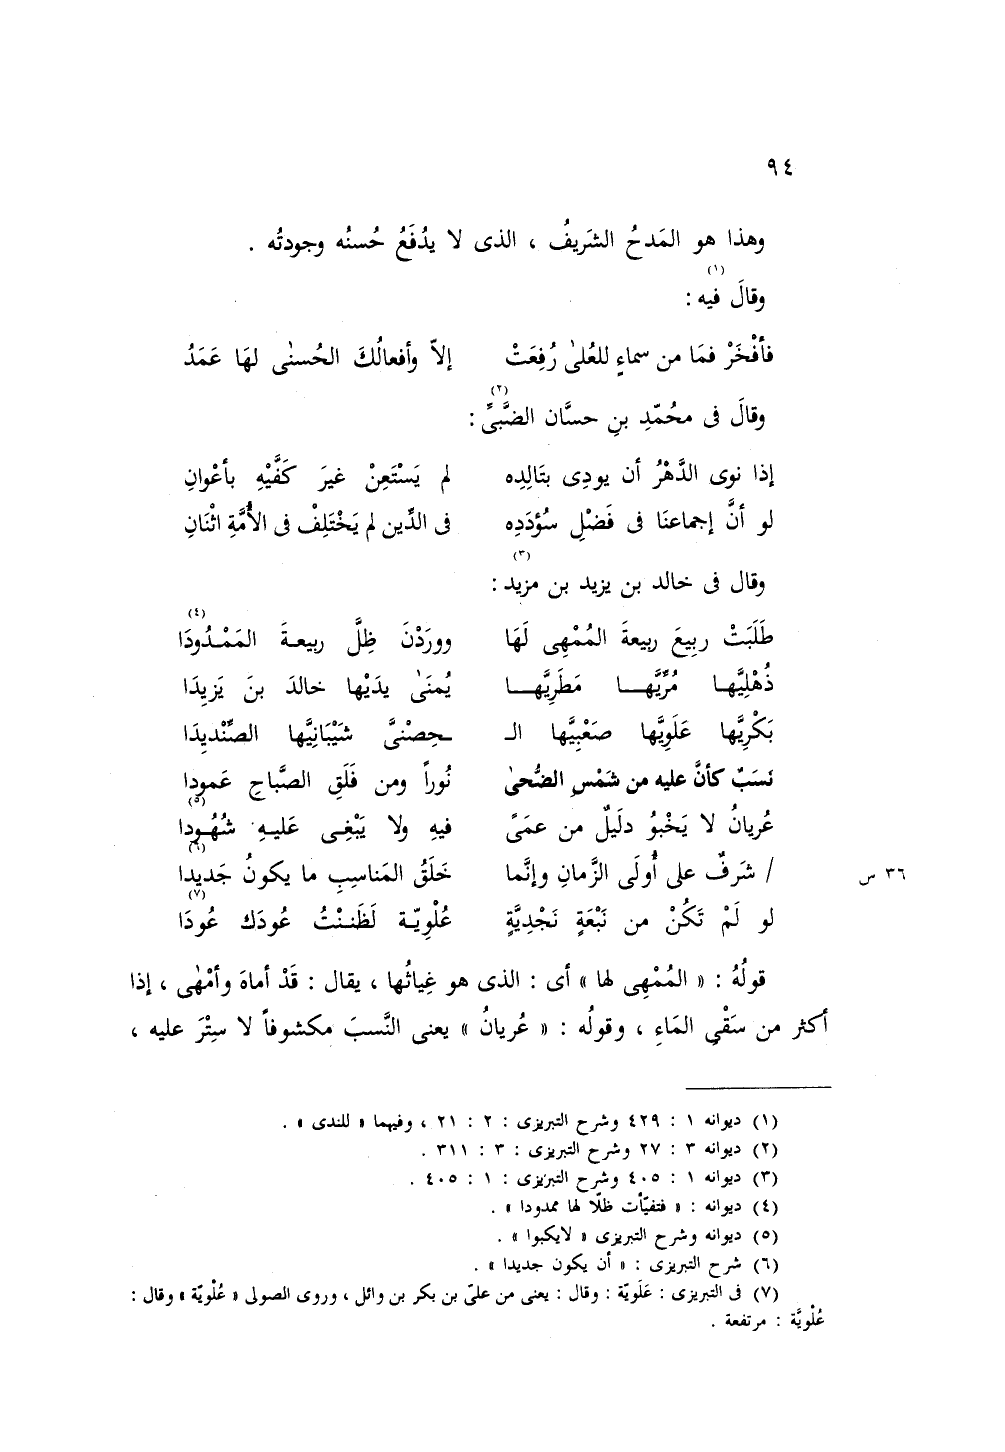 ٩٤
وهذا هو المَدحُ الشريفُ ، الذى لا يدُفَعُ حُسنُه وجودتُه .
وقالَ فيه (١) :
فأفْخَرْ فمَا من سماءٍ للعُلىٰ رُفِعَتْ إلاّ وأفعالُكَ الحُسنٰى لهَا عَمَدُ
وقالَ فى محُمّدِ بنِ حسَّان الضَّبىِّ (٢) :
إذا نوى الدَّهْرُ أن يودِى بتَالِدِه لم يَسْتَعِنْ غيرَ كَفَّيْهِ بأعْوانِ
لو أنَّ إجماعنَا فى فَضْلِ سُؤدَدِه فى الدِّين لم يَخْتَلِفْ فى الأُمَّةِ اثْنَانِ
وقال فى خالد بن يزيد بن مزيد (٣) :
طَلَبَتْ ربِيعَ ربيعةَ المُمْهِى لَهَا ووردْنَ ظِلَّ ربيعـةَ المَمْـدُودَا (٤)
ذُهْلِيَّها مُرِّيَّهـــا مَطَرِيَّهـــا يُمنَىٰ يدَيْها خالدَ بنَ يَزيِدَا
بَكْرِيَّها عَلَوِيَّها صَعْبِيَّها الـ ـحِصْنىَّ شَيْبَانِيَّها الصِّنْديِدَا
نَسَبٌ كأنَّ عليه من شَمْسِ الضُّحىٰ نُوراً ومن فَلَقِ الصَّباحِ عَمودِا
عُريانُ لا يَخْبوُ دلَيلٌ من عمَىً فيهِ ولا يَبْغِـى عَليـهِ شُهُـودِا (٥)
/ شرَفٌ على أُولَى الزَّمانِ وإنَّما خَلَقُ المَناسِبِ ما يكونُ جَديِدا (٦)
٣٦ س
لو لَمْ تَكُنْ من نَبْعَةٍ نَجْدِيَّةٍ عُلْوِيّـة لَظَنـنْتُ عُودَك عُودَا (٧)
قولُهُ : « المُمْهِى لها » أى : الذى هو غِياثُها ، يقال : قَدْ أماهَ وأمْهٰى ، إذا
أكثر من سَقْىِ المَاءِ ، وقولُه : « عُريانُ » يعنى النَّسبَ مكشوفاً لا سِتْرَ عليه ،
(١) ديوانه ١ : ٤٢٩ وشرح التبريزى : ٢ : ٢١ ، وفيهما « للندى » .
(٢) ديوانه ٣ : ٢٧ وشرح التبريزى : ٣ : ٣١١ .
(٣) ديوانه ١ : ٤٠٥ وشرح التبريزى : ١ : ٤٠٥ .
(٤) ديوانه : « فتفيّأت ظلّا لها ممدودا » .
(٥) ديوانه وشرح التبريزى « لايكبوا » .
(٦) شرح التبريزى : « أن يكون جديدا » .
(٧) فى التبريزى : عَلَويّة : وقال : يعنى من علىّ بن بكر بن وائل ، وروى الصولى « عُلْويّة » وقال :
عُلْويَّة : مرتفعة .